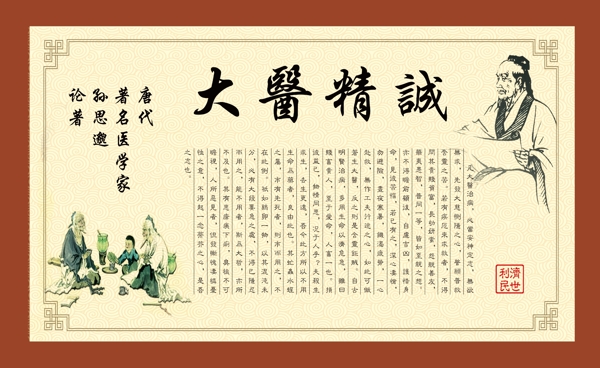 大醫精誠
唐代
著名医学家
孙思邈
论著
凡大醫治病，必當安神定志，無欲
無求，先發大慈惻隱之心，誓願普救
含靈之苦。若有疾厄來求救者，不得
問其貴賤貧富，長幼妍蚩，怨親善友，
華夷愚智，普同一等，皆如至親之想。
亦不得瞻前顧後，自慮吉凶，護惜身
命。見彼苦惱，若己有之，深心淒愴，
勿避險，晝夜寒暑，飢渴疲勞，一心
赴救，無作工夫行迹之心。如此可做
蒼生大醫，反之則是含靈巨賊。自古
明賢治病，多用生命以濟危急，雖曰
賤畜貴人，至于愛命，人畜一也。損
彼益己，物情同患，況于人乎？夫殺生
求生，去生更遠。吾今此方所以不用
生命為藥者，良由此也。其虻蟲水蛭
之屬，市有先死者，則市而用之，不
在此例。祇如雞卵一物，以其混沌未
分，必有大段要急之處，不得已隱忍
而用之。能不用者，斯為大哲，亦所
不及也。其有患瘡痍下痢，臭穢不可
瞻視，人所惡見者，但發慚愧淒憐憂
恤之意，不得起一念蒂芥之心，是吾
之志也。
濟世
利民